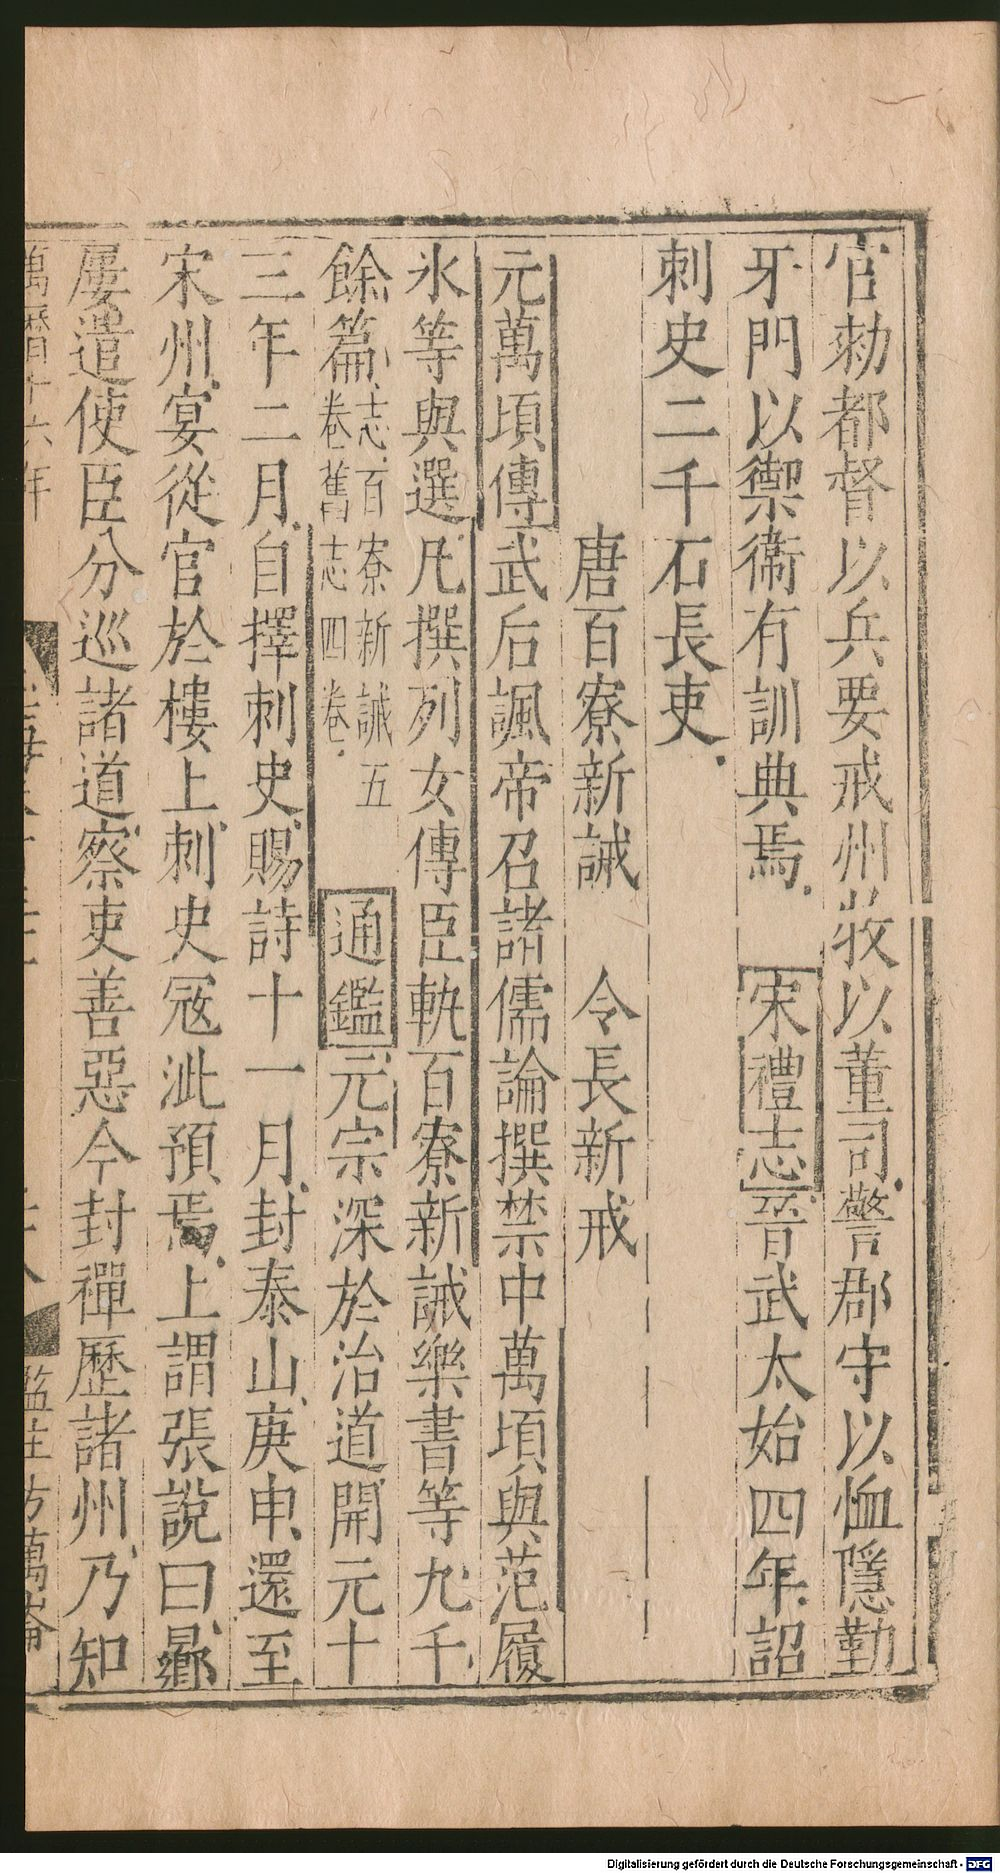 官勑都督以兵要戒州牧以董司警郡守以恤隱勤
牙門以禦衞有訓典焉宋禮志晉武太始四年詔
刺史二千石長吏
唐百寮新誡 令長新戒
元萬頃傳武后諷帝召諸儒論撰禁中萬頃與范履
氷等與選凡撰列女傳臣軌百寮新誡樂書等九千
餘篇志百寮新誡五卷舊志四卷通鑑元宗深於治道開元十
三年二月自擇刺史賜詩十一月封泰山庚申還至
宋州宴從官於樓上刺史寇泚預焉上謂張說曰曏
屢遣使臣分巡諸道察吏善惡今封禪歷諸州乃知
萬曆十六年
監生方萬
Digitalisierung gefördert durch die Deutsche Forschungsgemeinschaft - DFG